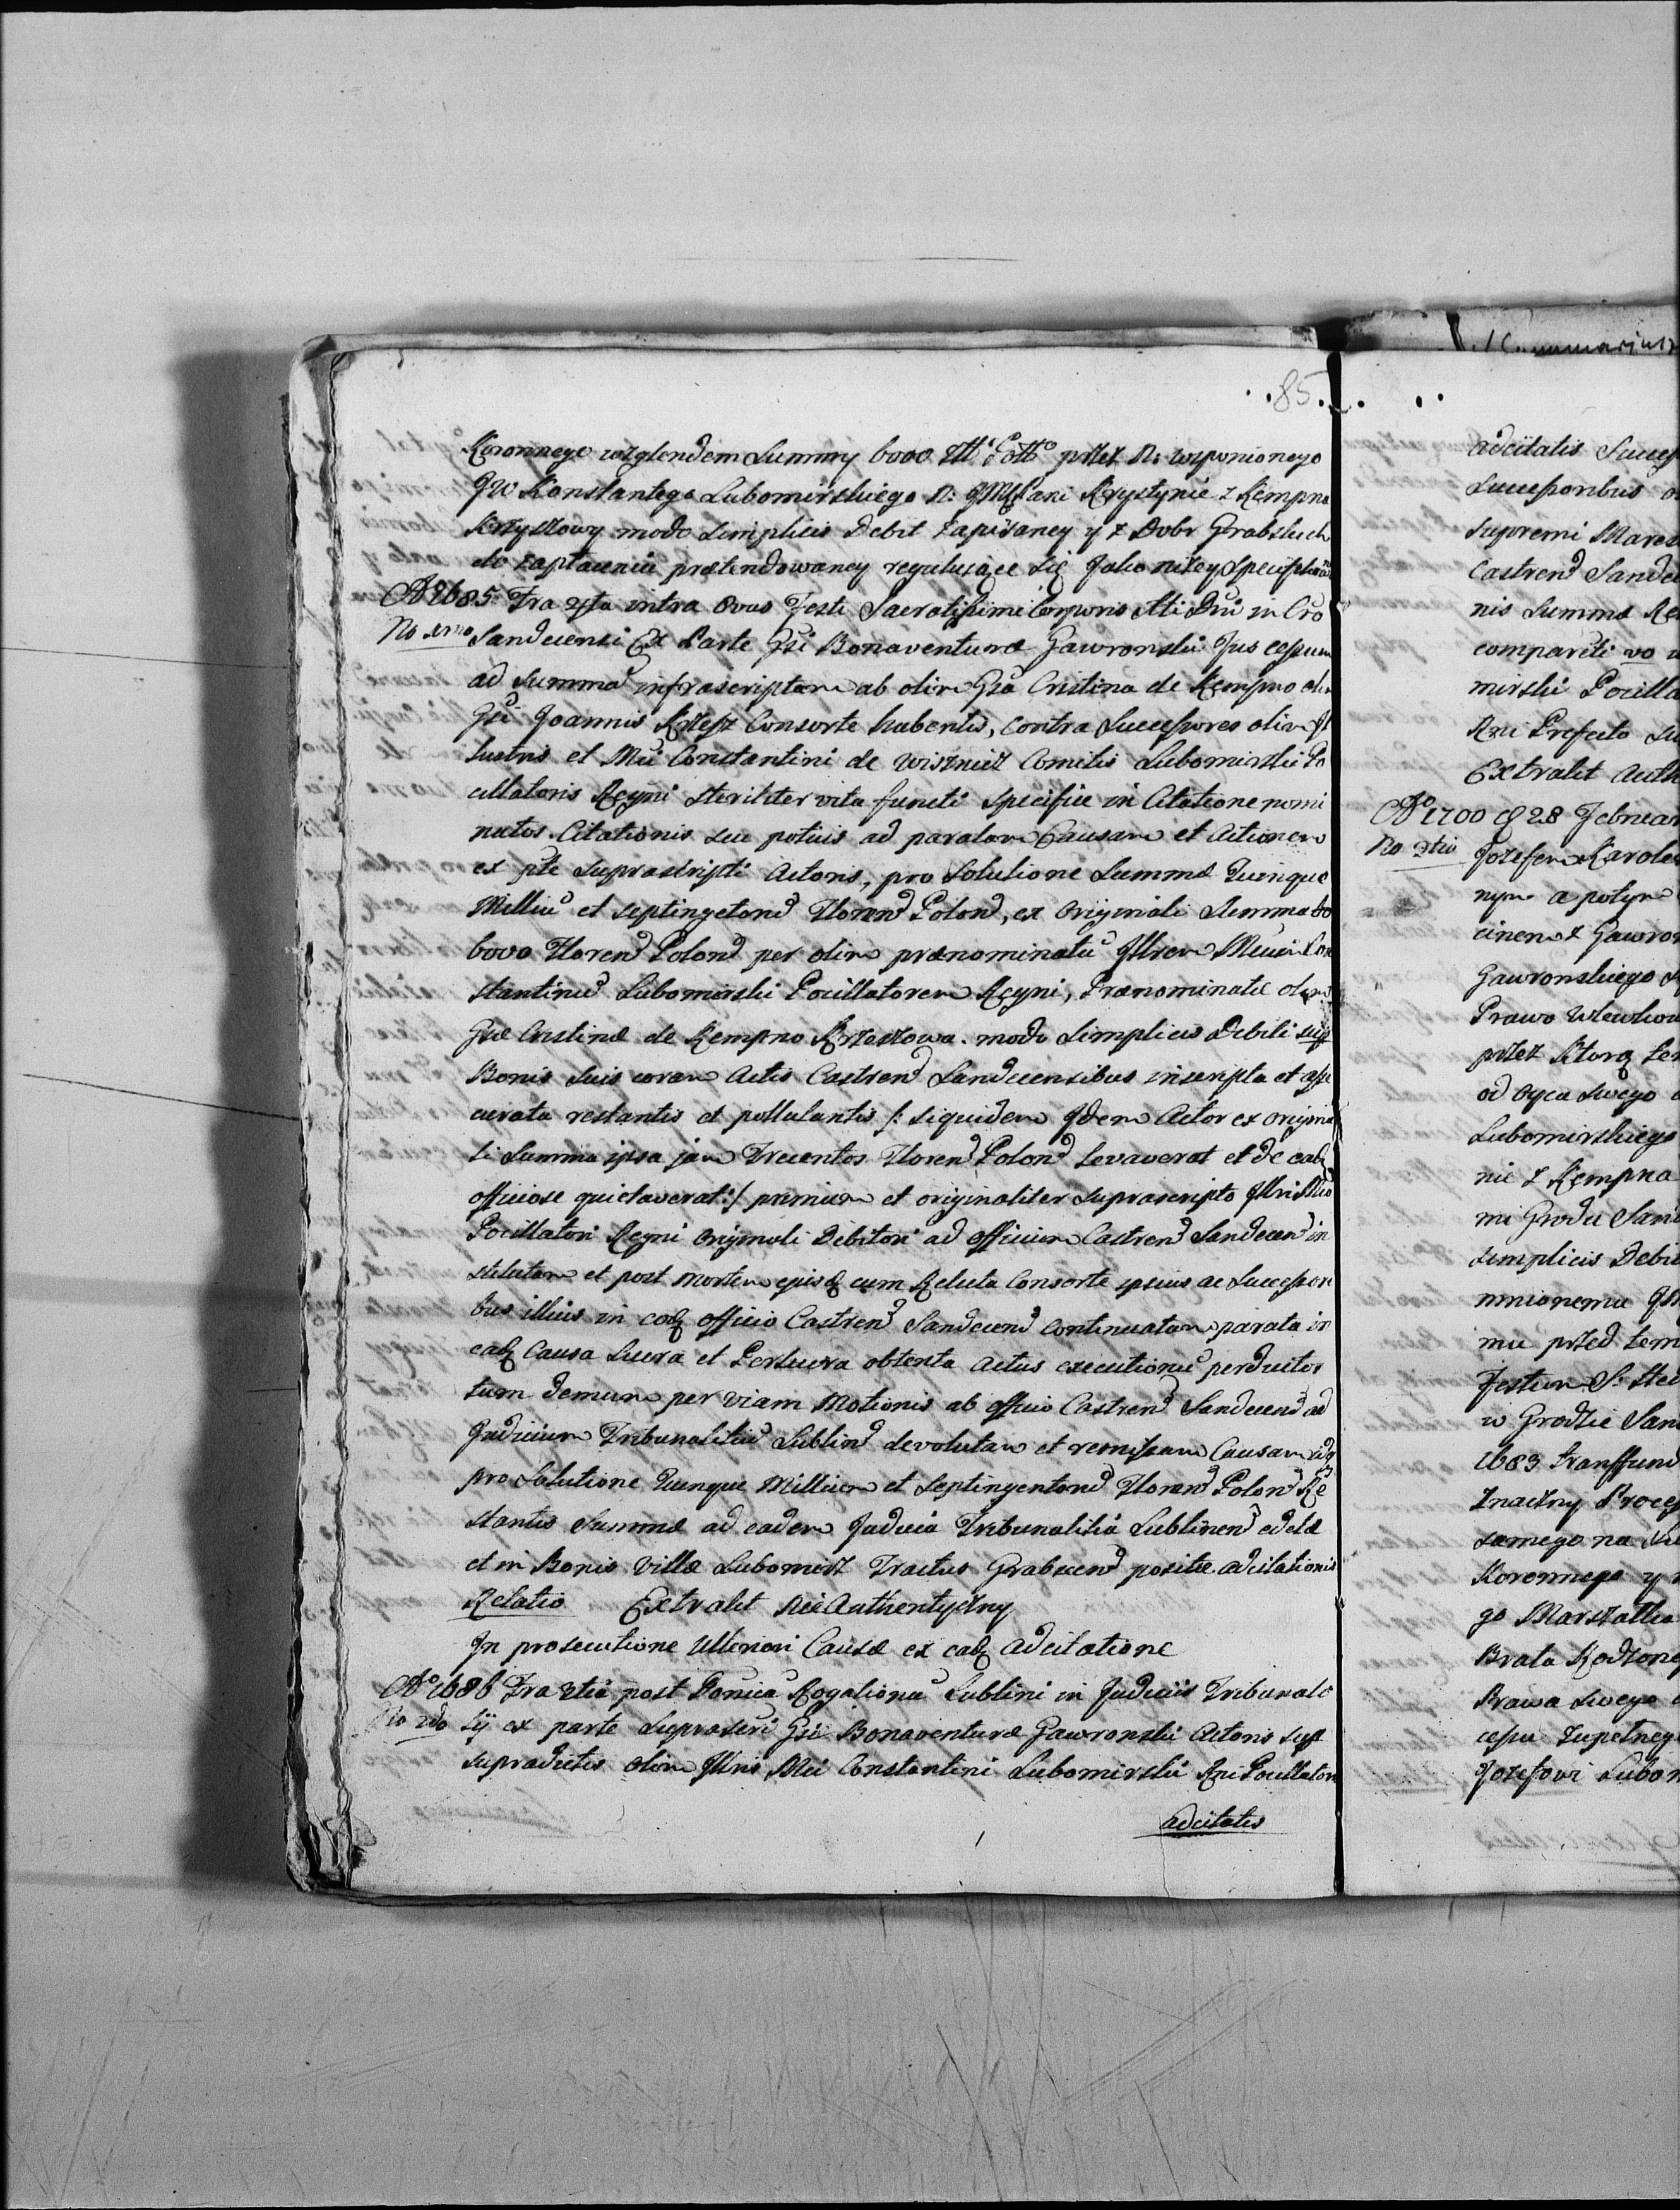 85.
Koronnego względem Summy 6000 Złł Poll. przez N: wspomionego
JW Konstantego Lubomirskiego N: JMPani Krystynie z Kempna
Krzyszowy modo simplicis Debit zapisaney y z Dobr Grabskich
do zapłacenia prætendowaney regulusiące się Jako niżey Specifik
Ao 1685 Fra 4ta intra Ovas Festi Sacratissimi Corporis Xti Dni in Cro
No 1mo Sandecensi Ex Parte Gsi Bonaventuræ Gawronski Jus cessum
ad Summã infrascriptam ab olim Gsa Cristina de Kempno olim
Gsi Joannis Krzesz Consorte habentis, contra Successores olim Jl
lustris et Mci Constantini de Wisznicz Comitis Lubomirski Po
cillatoris Regni steriliter vita functi specifice in Citatione nomi
natos. Citationis seu potius ad paratam Causam et Actionem
ex pte suprascripti Actoris, pro Solutione Summæ Quinque
Milliũ et septingetorũ Floren Polon, ex originali Summa
6000 Floren Polon per olim prænominatũ Jllrem Mcum Con
stantinũ Lubomirski Pocillatorem Regni, Prænominatæ olim
Gsæ Cristinæ de Kempno Krzeszowa modo simplicis Debiti sup
Bonis suis coram Actis Castren Sandecensibus inscripta et asse
curata restantis et pullulantis /: siquidem Jdem Actor ex origina
li Summa ipsa jam Trecentos Floren Polon levaverat et de ead
officiose quietaverat :/ primum et originaliter suprascripto Jllri Mco
Pocillatori Regni originali Debitori ad officium Castren Sandecen in
stitutam et post mortem ejusd cum Relicta Consorte ipsius ac Successori
bus illius in eod officio Castren Sandecen continuatam parata in
ead Causa Lucra et Perlucra obtenta actus executionũ perductos
tum demum per viam Motionis ab officio Castren Sandecen ad
Judicium Tribunalitiũ Lublin devolutam et remissam Causam
pro Solutione Quinque Millium et Septingentorũ Floren Polon Re
stantis Summæ ad eadem Judicia Tribunalitia Lublinen edetæ
et in Bonis Villæ Lubomierz Tractus Grabscen positæ adcitationis
Relatio Extrakt Nie Authentyczny
Jn prosecutione Ulteriori Causæ ex ead adcitatione
Ao 1686 Fra 3tia post Donicã Rogationũ Lublini in Judiciis Tribunali
No 2do tij ex parte Suprascri Gsi Bonaventuræ Gawronski Actoris sup
supradictis olim Jllris Mci Constantini Lubomirski Rni Pocillatori
adcitatis
adcitatis Success
Successoribus
Supremi Mares
Castren Sande
nis Summæ Re
compareti vo
mirski Pocilla
Rni Prefecto
Extrakt Auth
Ao 1700 d 28 Februar
No 3tio Jozefem Karole
nym a potym
cinem z Gawron
Gawronskiego
Prawo Wlewkow
przez Ktorą
od Oyca swego
Lubomirskiego
nie z Kempna
mi Grodu Sand
simplicis Debit
mnionemu JM
mu przed tem
Festum S.
w Grodzie San
1683 transfund
Znaczny Proces
samego na
Koronnego y
go Marszałka
Brata Rodzone
Prawa swego
cessu Zupełneg
Jozefowi Lubom